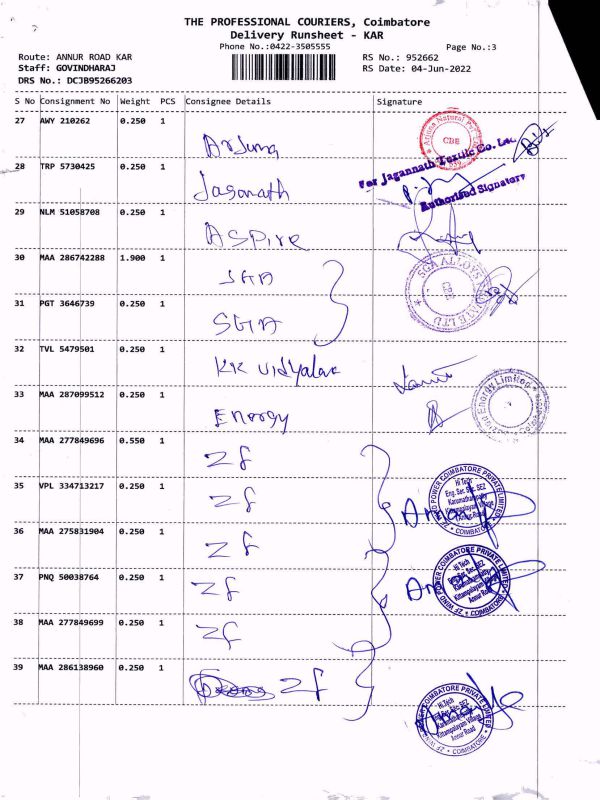 THE PROFESSIONAL COURIERS, Coimbatore
Delivery Runsheet - KAR
Phone No.:0422-3505555
Page No.:3
Route: ANNUR ROAD KAR
RS No.: 952662
Staff: GOVINDHARAJ
RS Date: 04-Jun-2022
DRS No.: DCJB95266203
S No Consignment No Weight PCS Consignee Details Signature
27 AWY 210262 0.250 1 Arjuna
CBE
28 TRP 5730425 0.250 1 Jaganath
For Jagannath Textile Co. Ltd.
Authorised Signatory
29 NLM 51058708 0.250 1 ASPIRE
30 MAA 286742288 1.900 1 SGA
SGA ALLOYS
31 PGT 3646739 0.250 1 SGA
32 TVL 5479501 0.250 1 KK Vidyalaya
33 MAA 287099512 0.250 1 Energy
Energy Limited
34 MAA 277849696 0.550 1 Zf
35 VPL 334713217 0.250 1 Zf
WIND POWER COIMBATORE PRIVATE LIMITED
Hi Tech
Eng. Ser. Sec. SEZ
Kittampalayam Village
Annur Road
COIMBATORE
36 MAA 275831904 0.250 1 Zf
37 PNQ 50038764 0.250 1 Zf
ZF WIND POWER COIMBATORE PRIVATE LIMITED
Annur Road
COIMBATORE
38 MAA 277849699 0.250 1 Zf
39 MAA 286138960 0.250 1 Zf
COIMBATORE PRIVATE LIMITED
Hi Tech
Kittampalayam Village
Annur Road
COIMBATORE